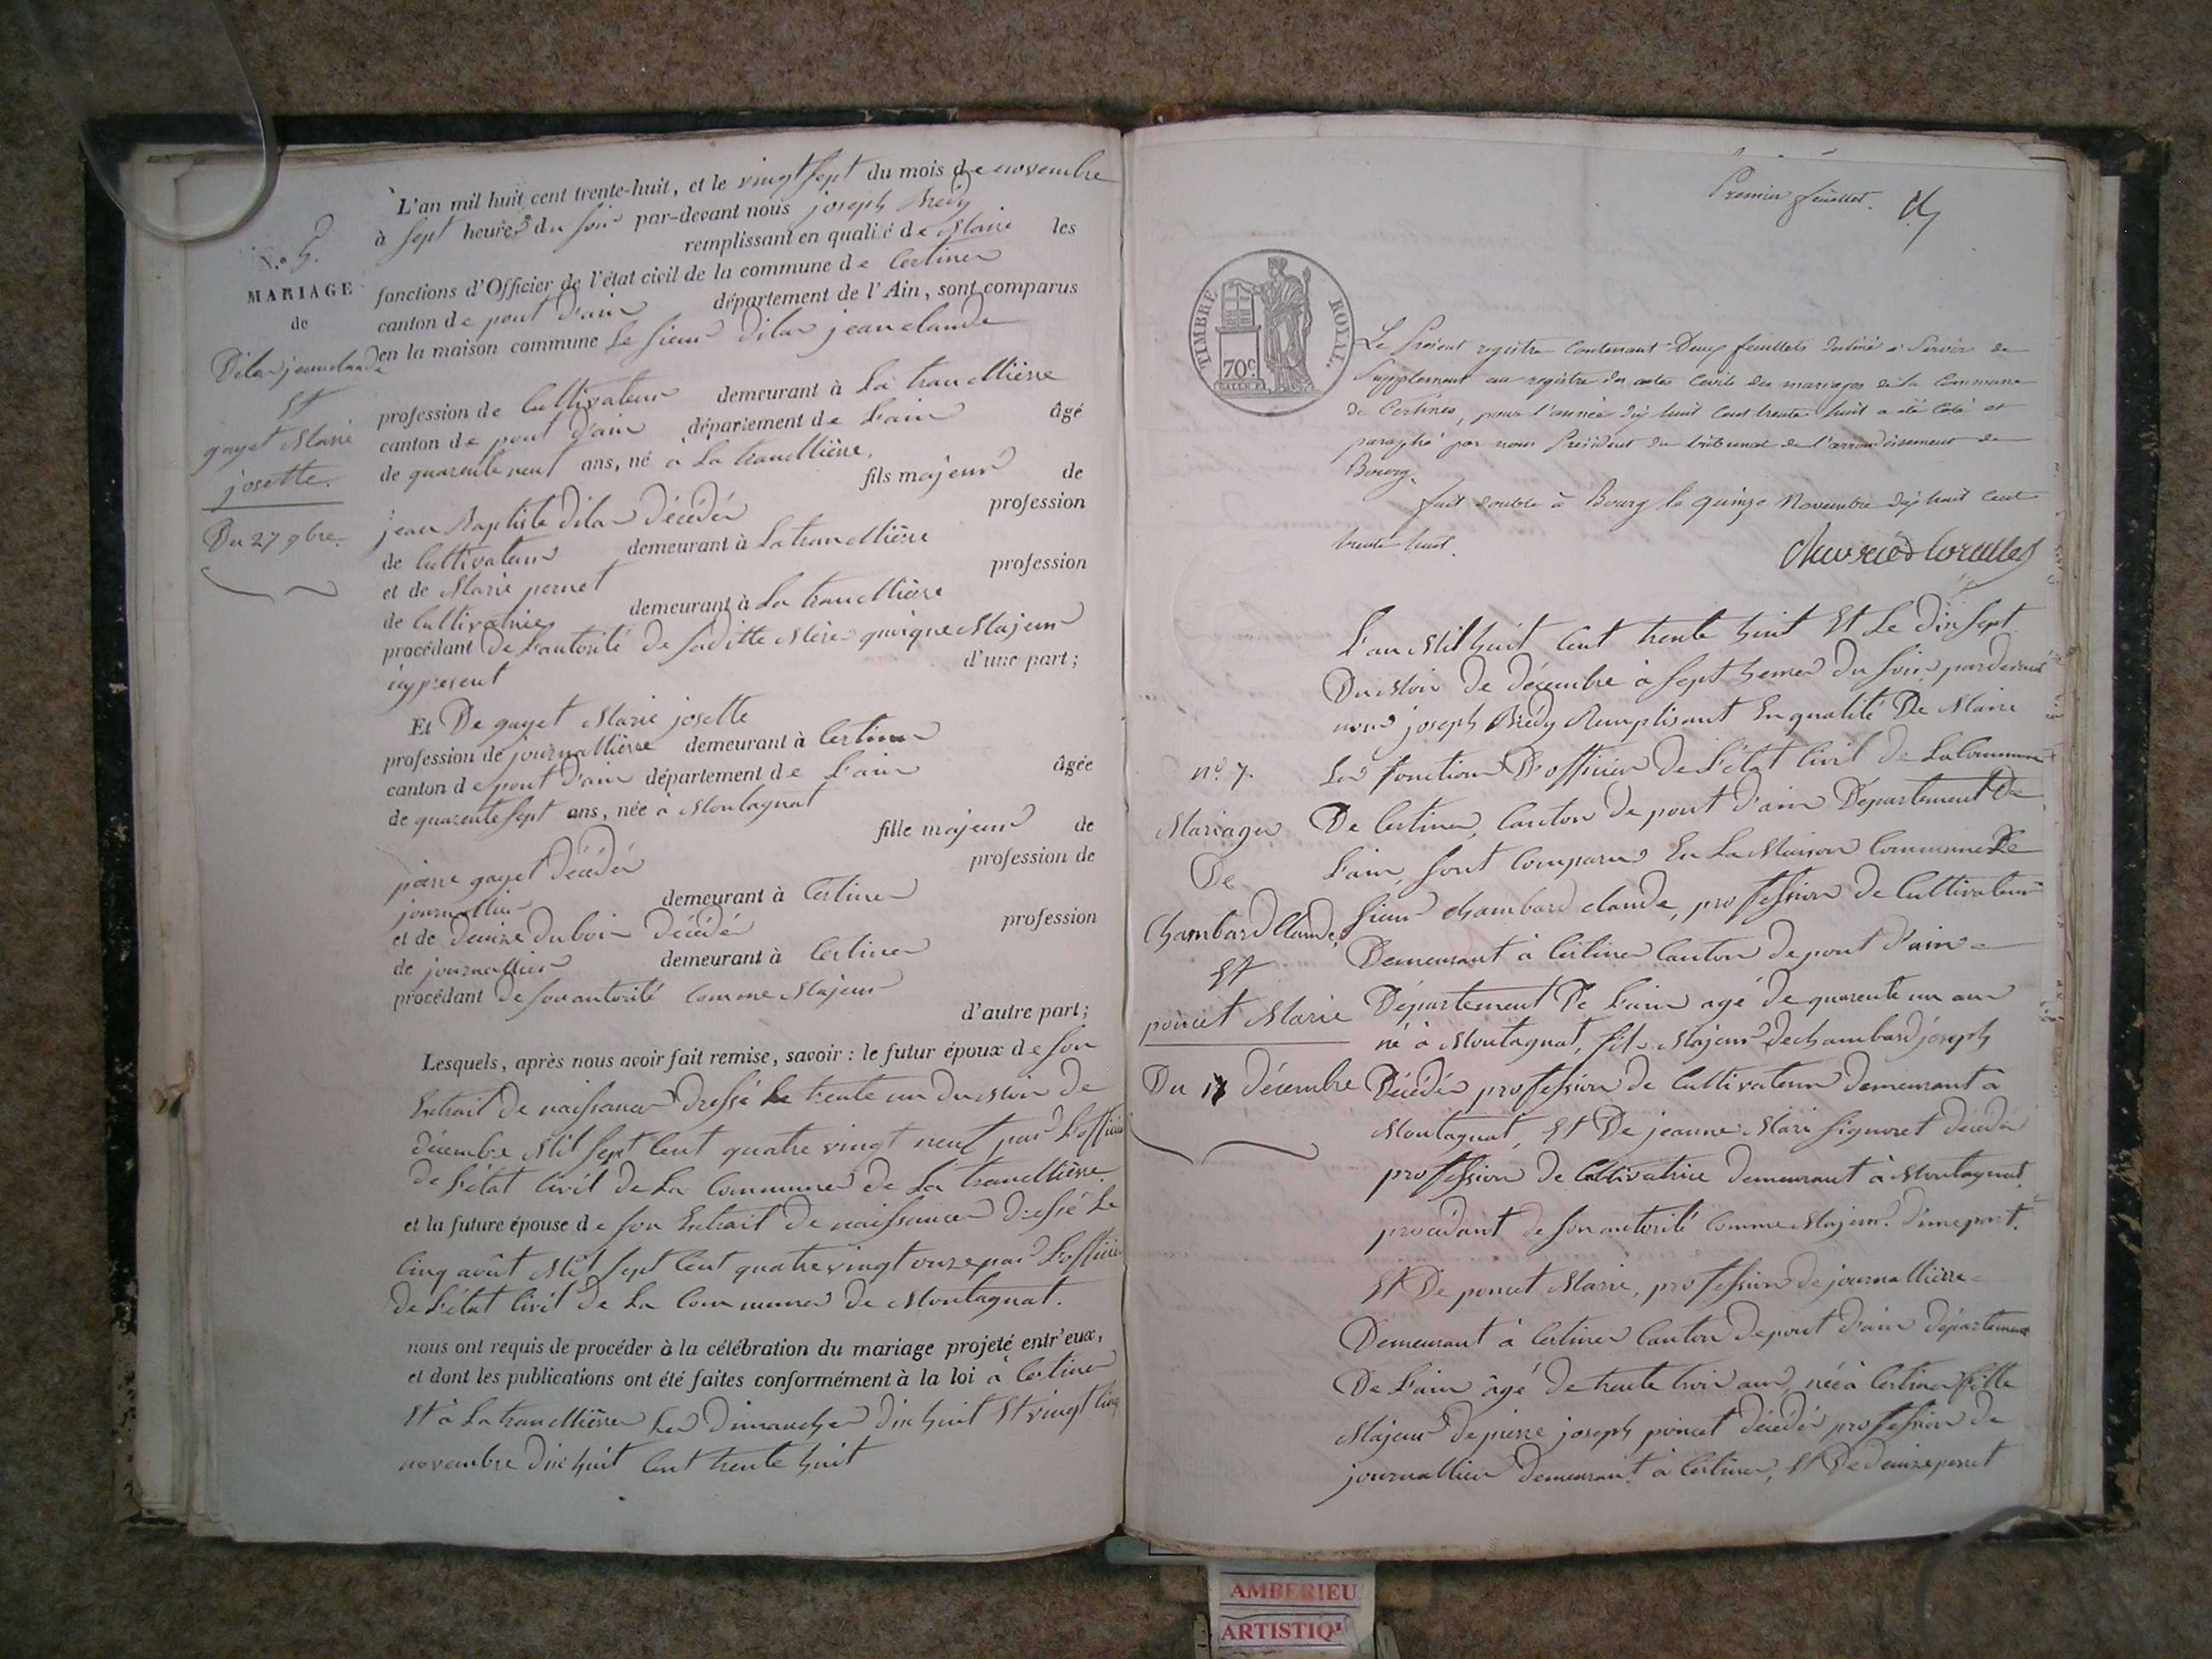 L'an mil huit cent trente-huit, et le vingt sept du mois de novembre
à sept heures du soir par-devant nous joseph Brédy
remplissant en qualité de Maire les
fonctions d'Officier de l'état civil de la commune de Certines
canton de pont d'ain département de l'Ain, sont comparus
en la maison commune Le sieur Dilas jean claude
profession de Cultivateur demeurant à La tranclliere
canton de pont d'ain département de L'ain âgé
de quarente neuf ans, né à La tranclliere,
fils majeur de
jean Baptiste Dilas Décédér profession
de Cultivateur demeurant à La tranclliere
et de Marie pernet profession
de Cultivatrice demeurant à La tranclliere
procédant De L'autorité De saditte Mère quoique Majeur
icy present d'une part;
N.o 5.
MARIAGE
de
Dilas jean claude
Et
gayet Marie
josette.
Du 27 9bre.
Et De gayet Marie josette
profession de journalliere demeurant à Certines
canton de pont d'ain département de L'ain âgée
de quarente sept ans, née à Montagnat
fille majeur de
pierre gayet Décédér profession de
journallier demeurant à Certines
et de Denize Duboi Décédé profession
de journallier demeurant à Certines
procédant de son autorité Comme Majeur
d'autre part;
Lesquels, après nous avoir fait remise, savoir : le futur époux de son
Extrait de naissance Dressé Le trente un Du Moi de
décembre Mil sept Cent quatre vingt neuf par L'officier
de L'état Civil de La Commune de La tranclliere.
et la future épouse de son Extrait De naissance Dressé Le
Cinq août Mil sept Cent quatre vingt onze par L'officier
de L'état Civil De La Commune De Montagnat.
nous ont requis de procéder à la célébration du mariage projeté entr'eux,
et dont les publications ont été faites conformément à la loi à Certines
Et à La tranclliere Les Dimanches Dix huit Et vingt Cinq
novembre Dix huit Cent trente huit
Premier feuillet.
TIMBRE ROYAL
70c
Le Présent registre Contenant Deux feuillets destiné à Servir de
Supplement au registre des actes Civils des mariages de la Commune
de Certines, pour l'année dix huit Cent trente huit a été Coté et
paraphé par nous Président du tribunal de l'arrondissement de
Bourg.
fait double à Bourg le quinze Novembre dix huit Cent
trente huit.
L'an Mil huit Cent trente huit Et Le Dix sept
Du Moi De décembre à sept heures Du soir, pardevant
nous joseph Brédy Remplisant En qualité De Maire
Les fonctions D'officier De L'état Civil de La Commune
De Certines, Canton de pont d'ain Département De
L'ain, sont Comparus En La Maison Commune Le
sieur chambard claude, profession De Cultivateur
Demeurant à Certines Canton de pont d'ain
Département De L'ain agé De quarente un ans
né à Montagnat, fils Majeur De chambard joseph
Décédér profession De Cultivateur demeurant à
Montagnat, Et De jeanne Marie signoret décédér
profession de Cultivatrice demeurant à Montagnat
procédant de son autorité Comme Majeur. D'une part.
n.o 7.
Mariages
De
Chambard Claude,
Et
poncet Marie
Du 17 décembre
Et De poncet Marie, profession de journalliere
Demeurant à Certines Canton de pont d'ain département
De L'ain âgé De trente troi ans, née à Certines fille
Majeur De pierre joseph poncet décédér profession De
journallier Demeurant à Certines, Et De denize perret
AMBERIEU
ARTISTIQ